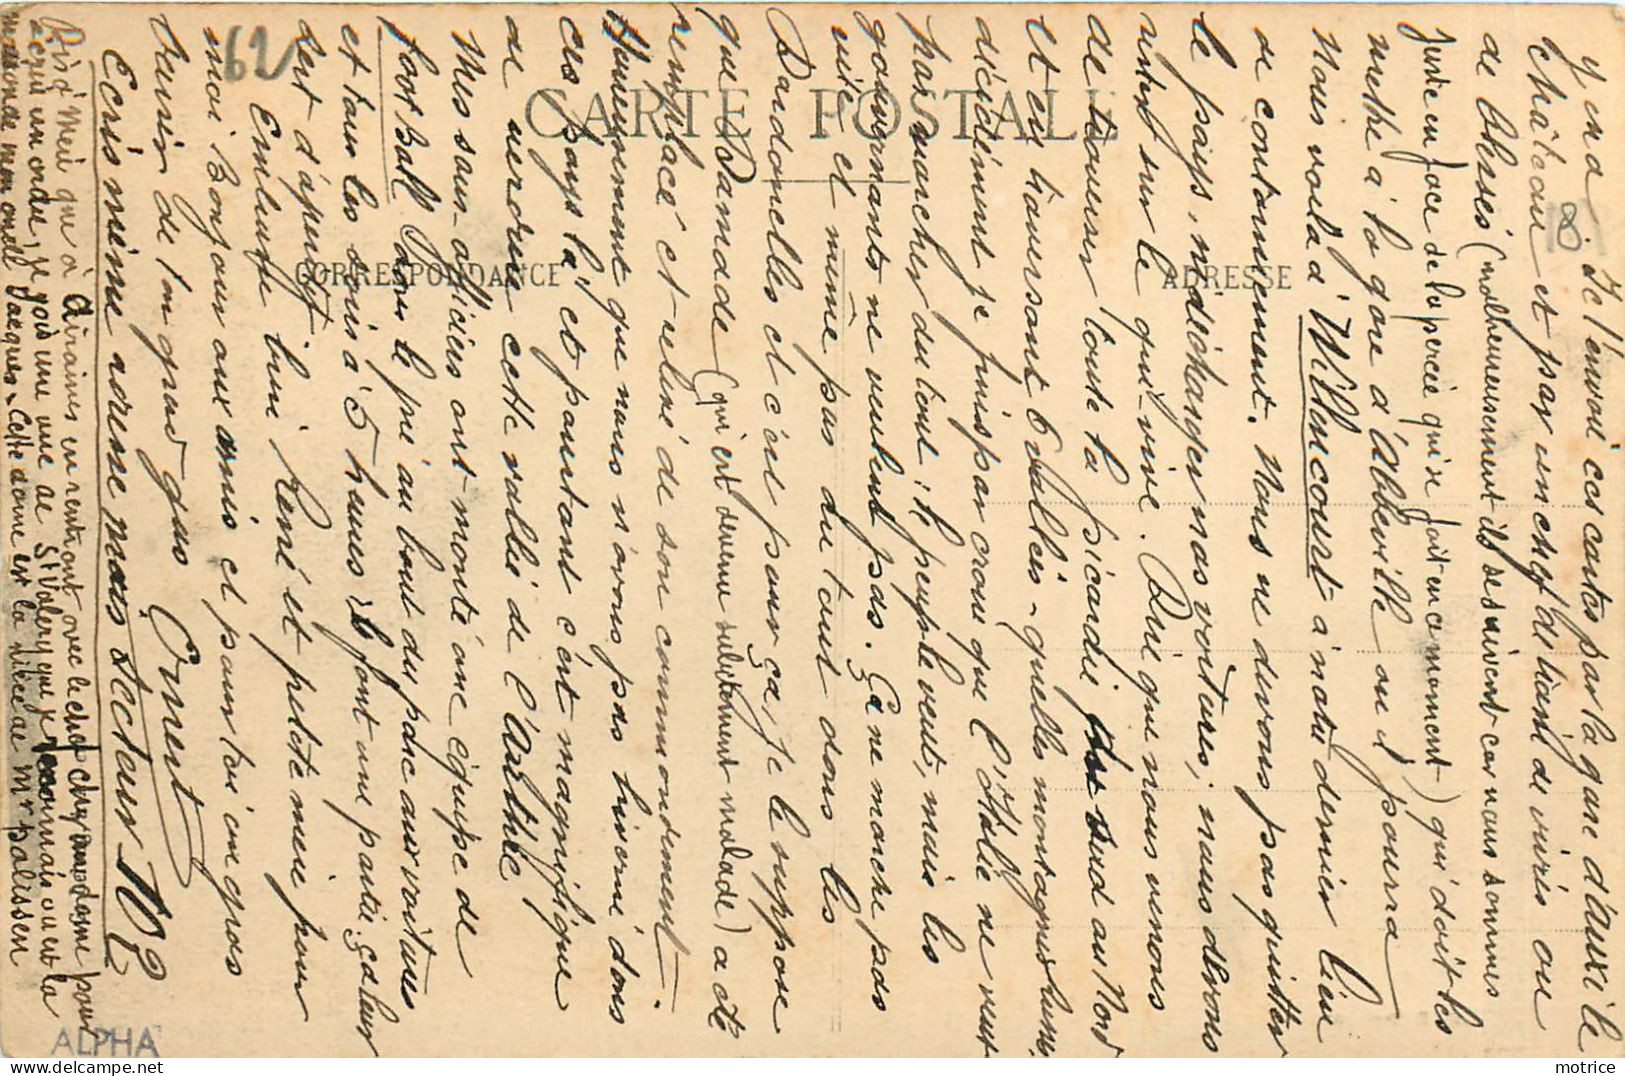 CARTE POSTALE
CORRESPONDANCE
ADRESSE
62
18
y en a. Je t'envoie ces cartes par la gare d'Auxi le
Château et par un chef de train de vivres ou
de blessés (malheureusement ils se suivent car nous sommes
juste en face de la percée qui se fait en ce moment) qui doit les
mettre à la gare d'Abbeville ou il pourra
Nous voilà à Villeucourt à notre dernier lieu
de cantonnement. Nous ne devons pas quitter
le pays, ni déranger nos voitures, nous devons
rester sur le qui-vive. Dire que nous venons
de traverser toute la picardie du sud au Nord
et en traversant 6 vallées - quelles montagnes hum.
décidément je finis par croire que l'Italie ne veut
pas marcher du tout : le peuple veut, mais les
gouvernants ne veulent pas. Ça ne marche pas
vite et même pas du tout dans les
Dardanelles et c'est pour ça, je le suppose
que Damade (qui est devenu subitement malade) a été
remplacé et relevé de son commandement.
Heureusement que nous n'avons pas hiverné dans
ces pays là, et pourtant c'est magnifique
de verdure cette vallée de l'Authie
Mes sous-officiers ont monté une équipe de
foot Ball dans le pré au bout du parc aux voitures
et tous les soirs à 5 heures ils font une partie. ça leur
sert d'apéritif
Embrasse bien René et petite mère pour
moi Bonjour aux amis et pour toi un gros
baiser de ton grand gros Ernest
Ecris même adresse mais Secteur N° 2
Dis à Mère qu'à Airaines en rentrant avec le chef chez une dame pour
écrire un ordre, je vois une vue de St Valery que je reconnais ou est la
maison de mon oncle Jacques. Cette dame est la nièce de Mr Palissen
ALPHA
motrice